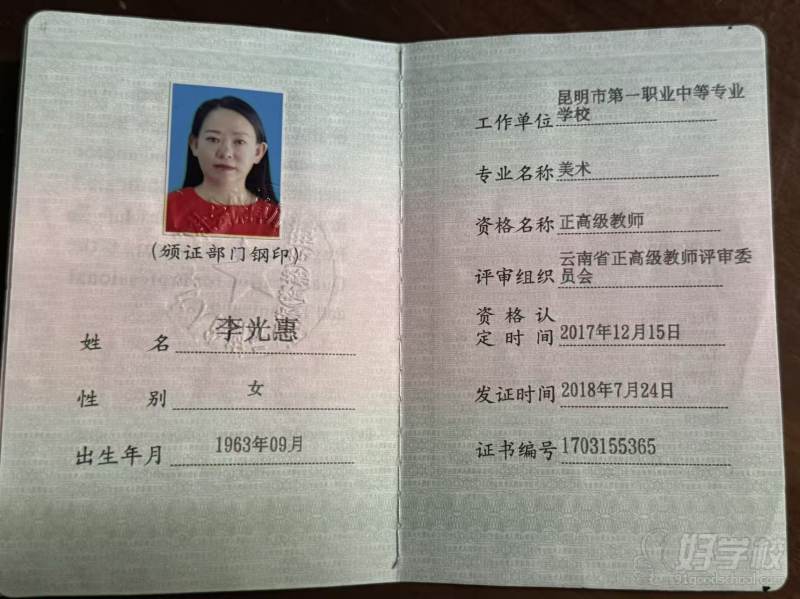 (颁证部门钢印)
姓名 李光惠
性别 女
出生年月 1963年09月
昆明市第一职业中等专业
工作单位 学校
专业名称 美术
资格名称 正高级教师
云南省正高级教师评审委
评审组织 员会
资格认
定时间 2017年12月15日
发证时间 2018年7月24日
证书编号 1703155365
好学校
91goodschool.com